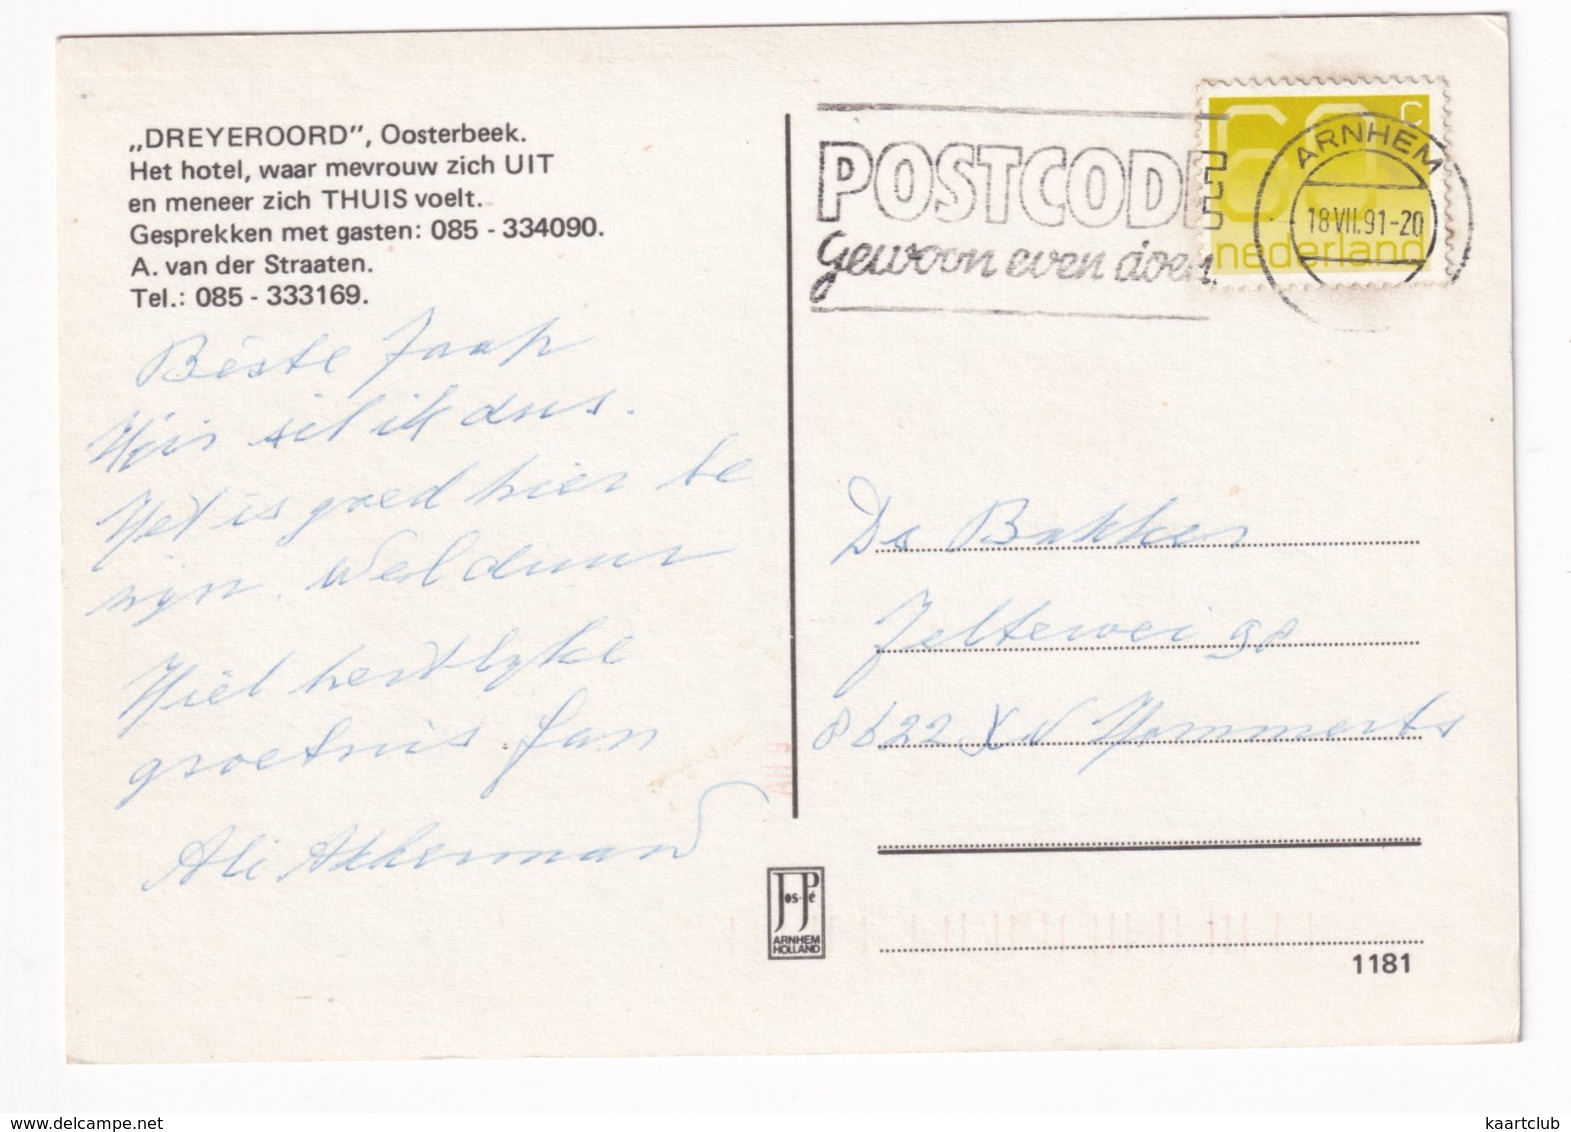 „DREYEROORD”, Oosterbeek.
Het hotel, waar mevrouw zich UIT
en meneer zich THUIS voelt.
Gesprekken met gasten: 085 - 334090.
A. van der Straaten.
Tel.: 085 - 333169.
Beste Jaap
Hier zit ik dus.
Het is goed hier te
zijn. Wel duur
Hiel hertlyke
groetnis fan
Ali Akkerman
POSTCODE
gewoon even doen.
60 c
nederland
ARNHEM
18 VII.91-20
Ds Bakker
Jeltewei 90
8622 XN Hommerts
Jos-Pé
ARNHEM
HOLLAND
1181
kaartclub
delcampe.net